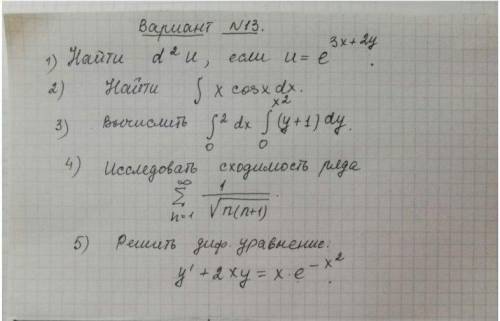 Вариант №13.
1) Найти d²u, если u = e^{3x+2y}.
2) Найти ∫ x cosx dx.
3) Вычислить ∫_0^2 dx ∫_0^{x^2} (y+1) dy.
4) Исследовать сходимость ряда
∑_{n=1}^∞ 1/√(n(n+1)).
5) Решить диф. уравнение:
y' + 2xy = x·e^{-x^2}.